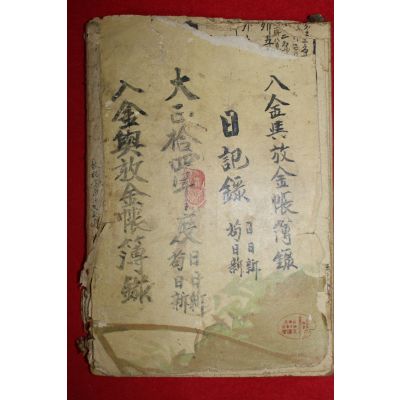 入金與放金帳簿錄
日記錄
日日新
苟日新
大正拾四年度
日日新
苟日新
入金與放金帳簿錄